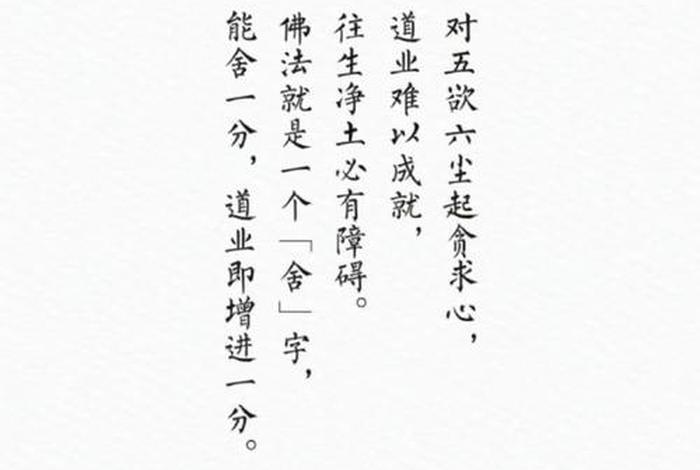 对五欲六尘起贪求心，
道业难以成就，
往生净土必有障碍。
佛法就是一个「舍」字，
能舍一分，道业即增进一分。